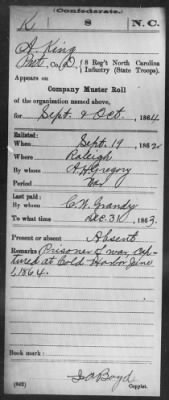 (Confederate.)
K 8 N.C.
A. King
Pvt. Co. D., 8 Reg't North Carolina
Infantry (State Troops).
Appears on
Company Muster Roll
of the organization named above,
for Sept. & Oct., 1864
Enlisted:
When Sept. 19, 1862
Where Raleigh
By whom A. H. Gregory
Period War
Last paid:
By whom C. W. Grandy
To what time Dec. 31, 1863.
Present or absent Absent
Remarks: Prisoner of war, cap-
tured at Cold Harbor June
1, 1864.
Book mark:
(642)
Boyd
Copyist.